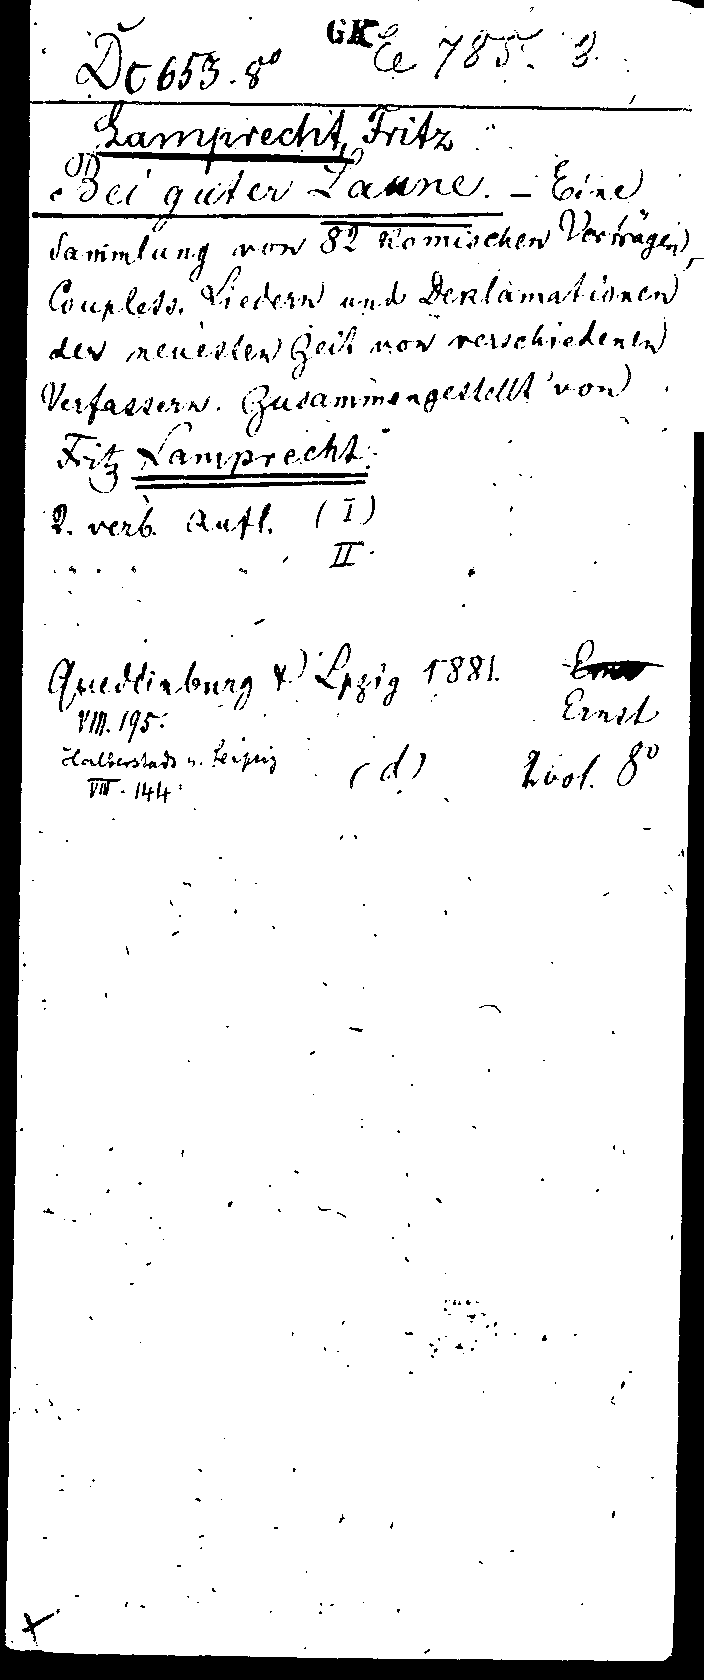 GK Ee 785. 3.
Dc 653. 8°
Lamprecht, Fritz
Bei guter Laune. – Eine
Sammlung von 82 komischen Vorträgen,
Couplets, Liedern und Deklamationen
der neuesten Zeit von verschiedenen
Verfassern. Zusammengestellt von
Fritz Lamprecht.
2. verb. Aufl. (I)
II.
Quedlinburg & Lpzig 1881.
Ernst
VIII. 195.
Halberstadt u. Leipzig (d) 2 vol. 8°
VIII. 144.